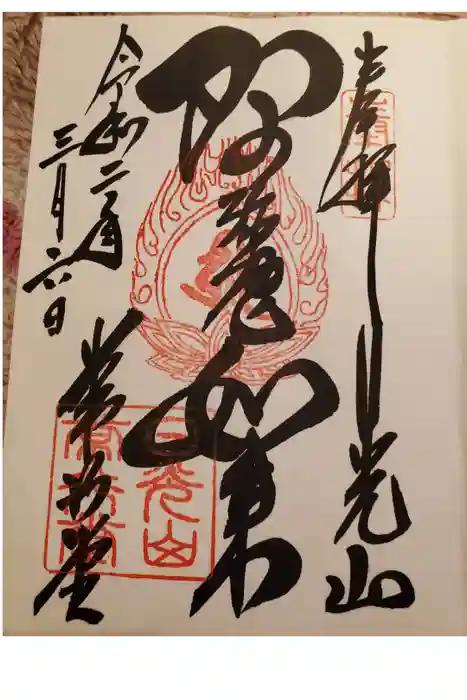 奉拝 日光山
阿弥陀如来
令和二年
三月六日
常行堂
日光山